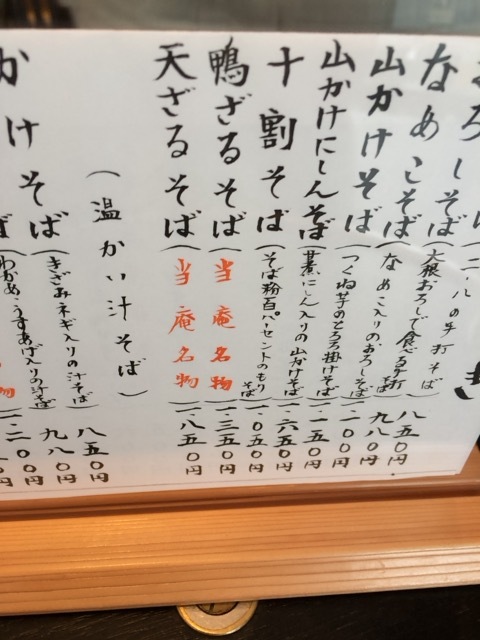 おろしそば（二・八の手打そば
なめこそば（大根おろしで食べる手打そば 八五〇円
山かけそば（なめこ入りのおろしそば 九八〇円
山かけにしんそば（つくね芋のとろろ掛けそば 一、二〇〇円
十割そば（煮にしん入りの山かけそば 一、六五〇円
（そば粉百パーセントのもりそば 一、〇五〇円
鴨ざるそば（当庵名物）一、三五〇円
天ざるそば（当庵名物）一、八五〇円
（温かい汁そば）
かけそば 八五〇円
（きざみネギ入りの汁そば 九八〇円
（わかめ・うすあげ入りの汁そば 一、二〇〇円